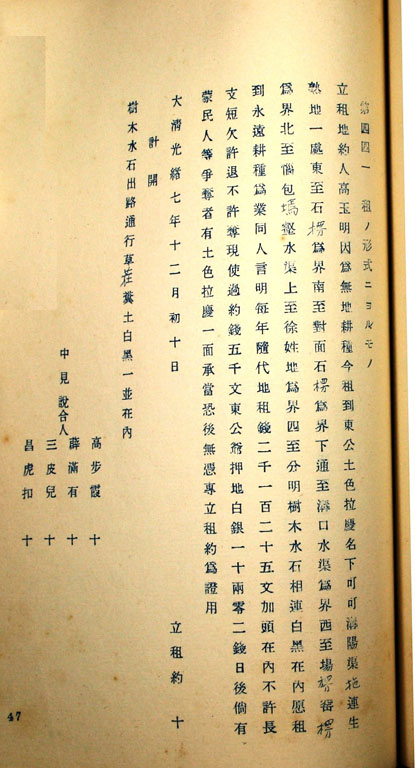 第四四一 租ノ形式ニヨルモノ
立租地約人高玉明因爲無地耕種今租到東公土色拉慶名下可可溝陽渠地連生
熟地一處東至石楞爲界南至對面石楞爲界下通至溝口水渠爲界西至場塄畓楞
爲界北至惱包塢壑水渠上至徐姓地爲界四至分明樹木水石相連白黑在內愿租
到永遠耕種爲業同人言明每年隨代地租錢二千一百二十五文加頭在內不許長
支短欠許退不許奪現使過約錢五千文東公爺押地白銀一十兩零二錢日後倘有
蒙民人等爭奪者有土色拉慶一面承當恐後無憑專立租約爲證用
大清光緒七年十二月初十日 立租約 十
計開
樹木水石出路通行草茬糞土白黑一並在內
中見說合人
高步霞 十
薛滿有 十
三皮兒 十
昌虎扣 十
47